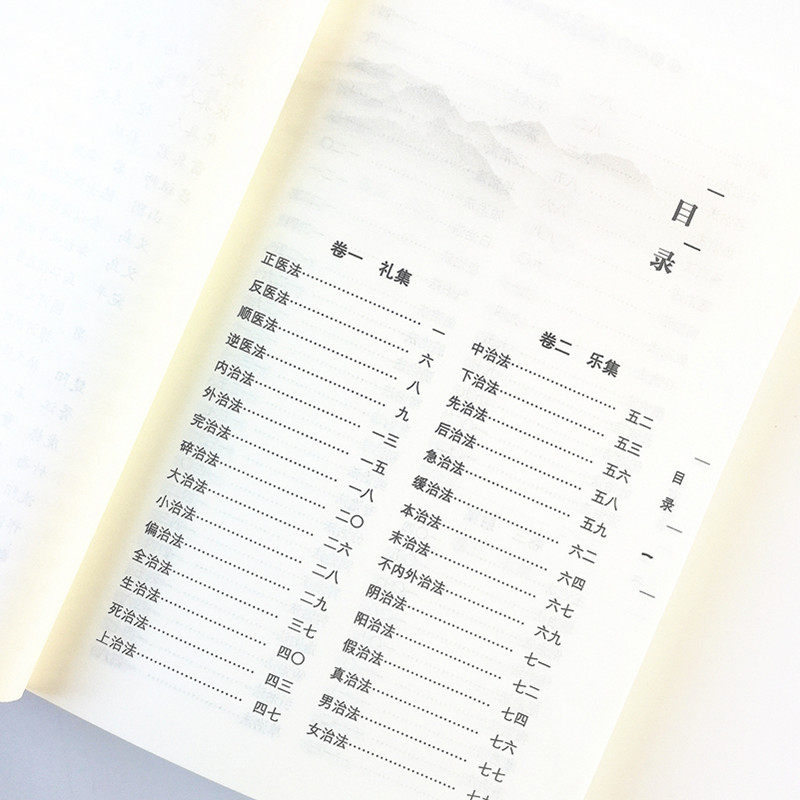 目录
卷一 礼集
正医法……………一
反医法……………六
顺医法……………八
逆医法……………九
内治法……………一三
外治法……………一五
完治法……………一八
碎治法……………二〇
大治法……………二六
小治法……………二八
偏治法……………二九
全治法……………三七
生治法……………四〇
死治法……………四三
上治法……………四七
卷二 乐集
中治法……………五二
下治法……………五三
先治法……………五六
后治法……………五八
急治法……………五九
缓治法……………六二
本治法……………六四
末治法……………六七
不内外治法…………六九
阴治法……………七一
阳治法……………七二
假治法……………七四
真治法……………七六
男治法……………七七
女治法……………
目录
一